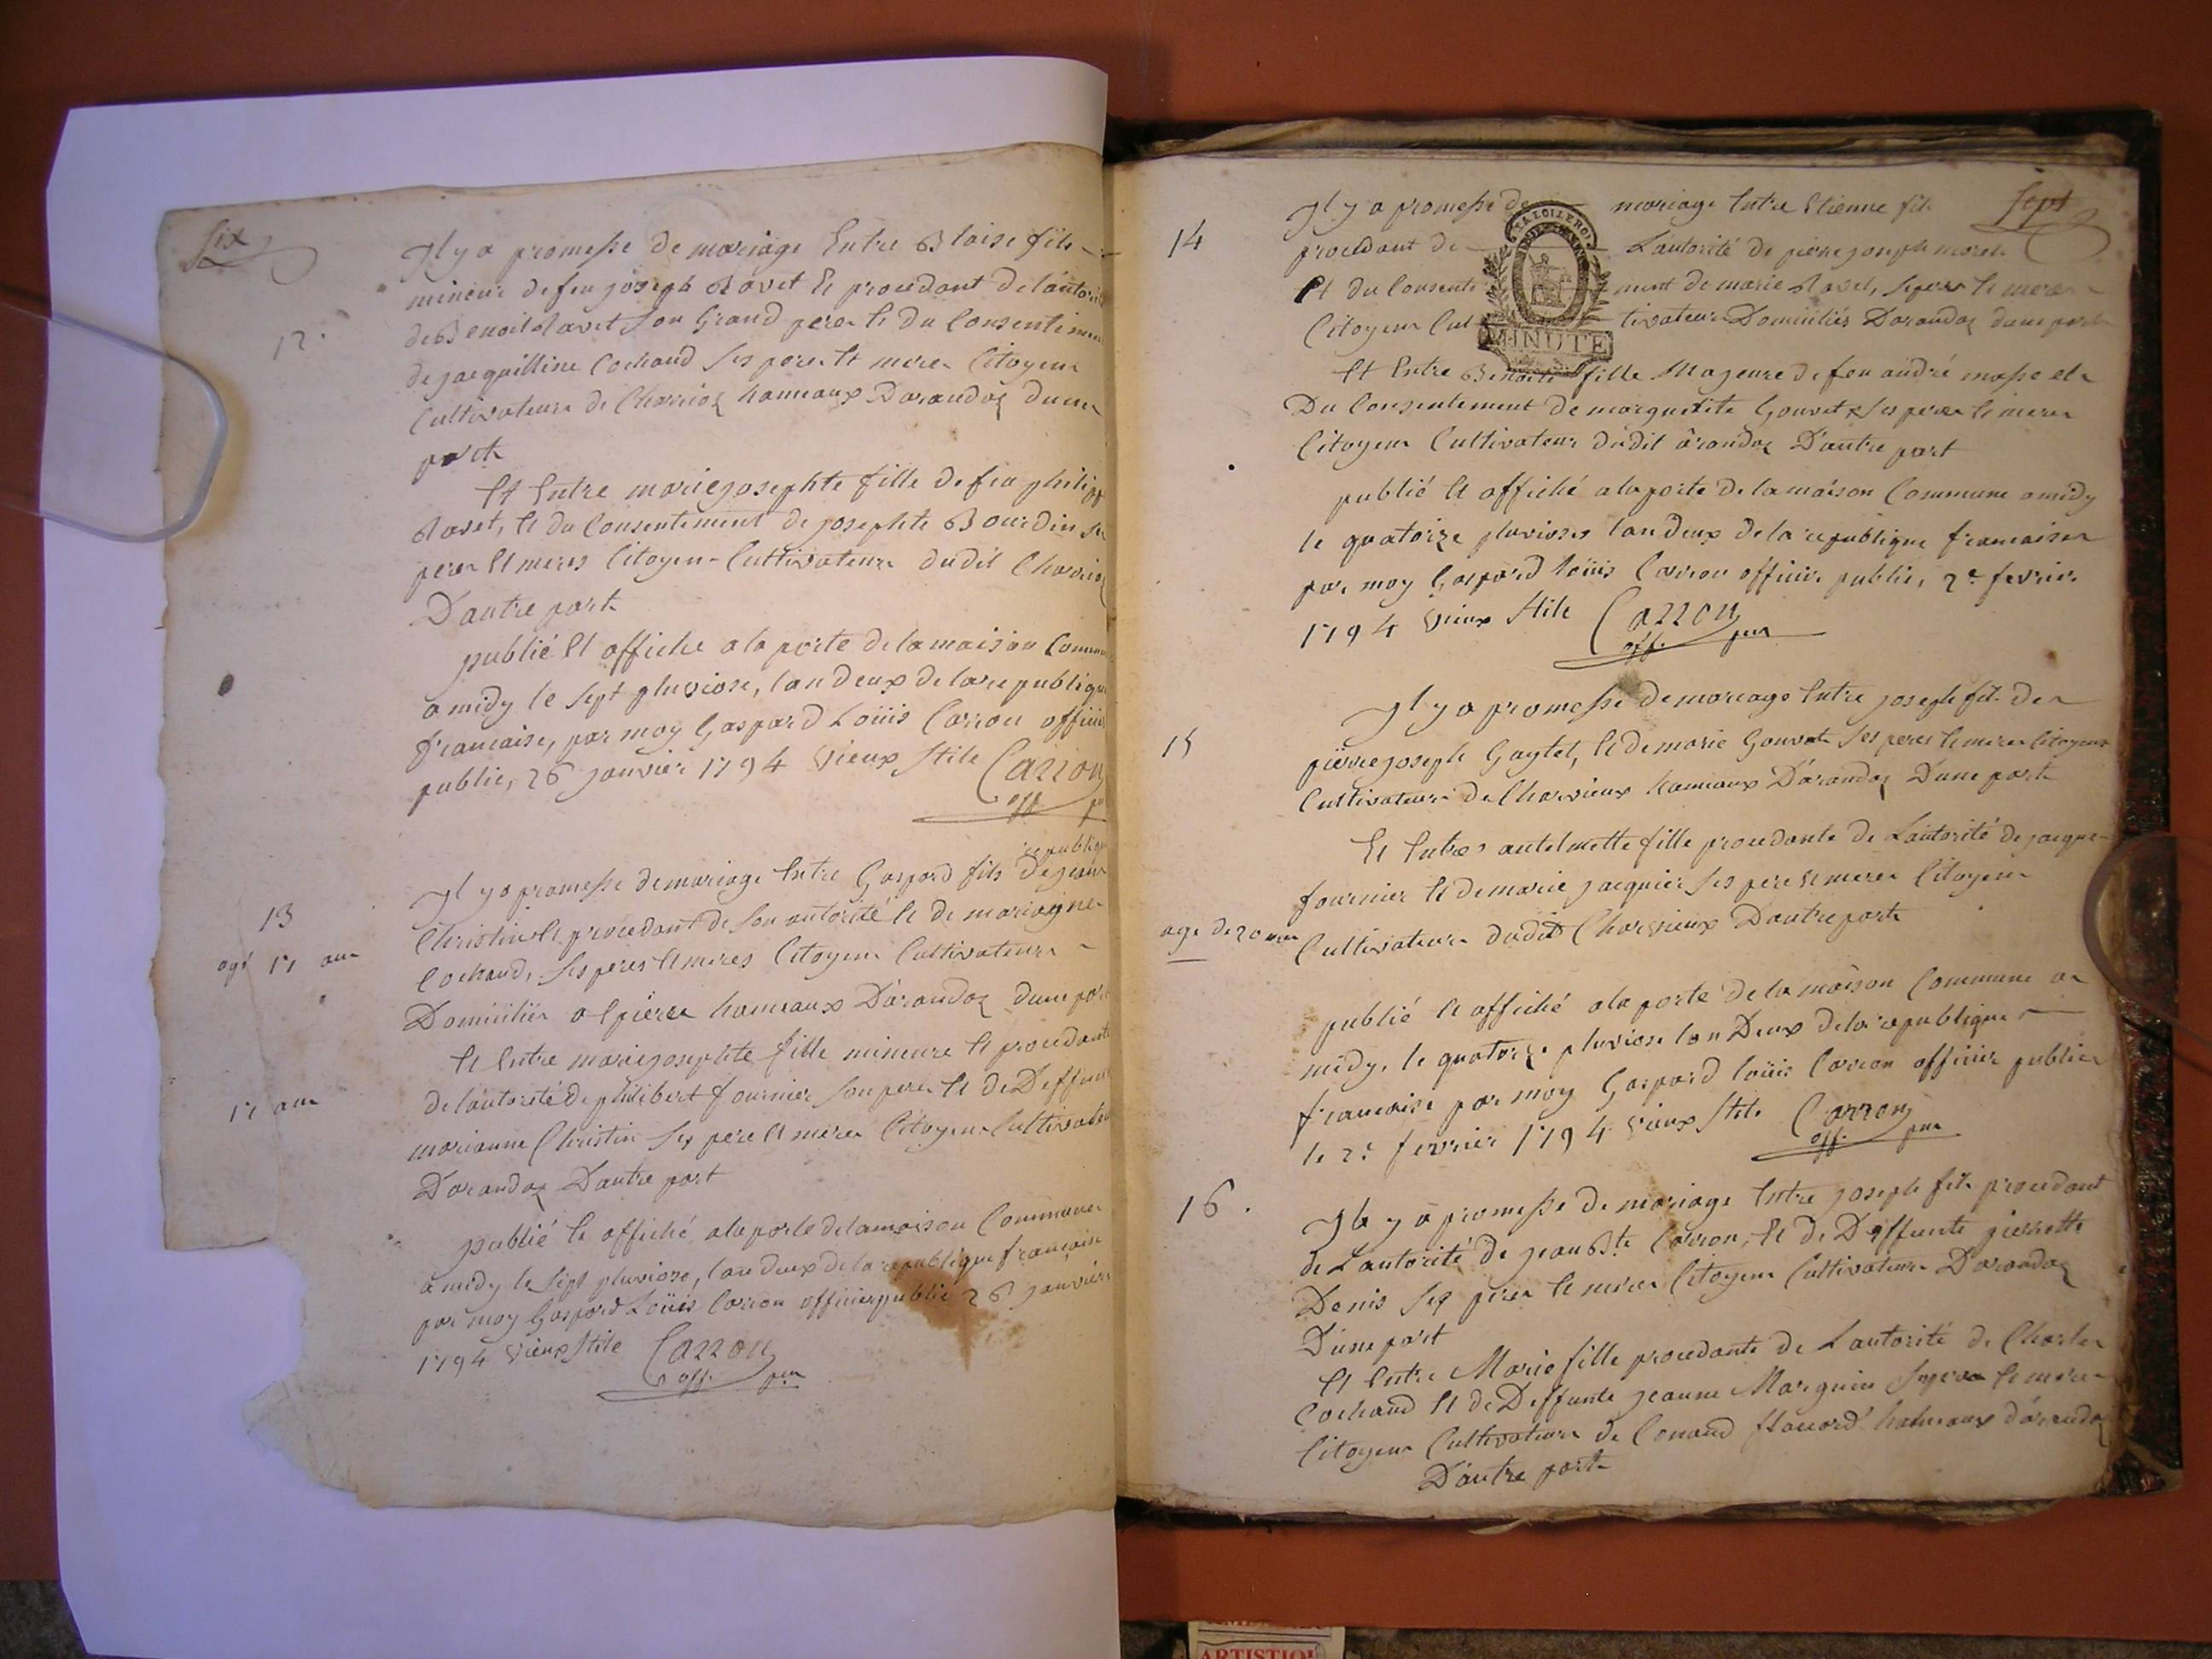 Six
12.
Il y a promesse de mariage Entre Blaise fils
mineur de feu joseph Ravet Et procedant de lautori
de Benoit Ravet son Grand pere Et du Consentimen
de jacquilline Cochaud ses pere Et mere Citoyens
Cultivateurs de Charvioz hameaux Darandoz dune
part
Et Entre mariejosephte fille de feu philip
Ravet, Et du Consentement de josephte Bourdin se
peres Et meres Citoyens Cultivateurs dudit Charvioz
D'autre part
publié Et affiche a la porte de la maison Commu
a midy le sept pluviose, lan deux de la republiqu
francaise, par moy Gaspard Loüis Carron officie
public, 26 janvier 1794 Vieux Stile Carron
off pu
republiqu
13
Il y a promesse de mariage Entre Gaspard fils De jean
Christin Et procedant de son autorité Et de mariagne
agé 17 ans
Cochaud, ses peres Et meres Citoyens Cultivateurs
Domiciliés a lpierre hameaux D'arandoz dune par
Et Entre mariejosephte fille mineure Et procedante
17 ans
de lautorité de philibert fournier son pere Et de Deffun
marianne Christin ses pere Et mere Citoyens Cultivate
Darandoz D'autre part
publié Et affiché a la porte de la maison Commune
a midy le sept pluviose, lan deux de la republique française
par moy Gaspard Loüis Carron officier public 26 janvier
1794 Vieux Stile Carron
off. pu
Sept
14
Il y a promesse de mariage Entre Etienne fils
procedant de L'autorité de pierre joseph morel
Et du Consente ment de marie Ravet, ses pere Et mere
Citoyens Cul tivateurs Domiciliés Darandoz dune part
LA LOI LE ROI
MINUTE
Et Entre Benoite fille Majeure de feu andré masse et
Du Consentement de marguerite Gouvet ses pere Et mere
Citoyens Cultivateurs dudit arandoz D'autre part
publié Et affiché a la porte de la maison Commune a midy
le quatorze pluviose lan Deux de la republique francaise
par moy Gaspard loüis Carron officier public, 2e fevrier
1794 Vieux Stile Carron
off. pu
15
Il y a promesse de mariage Entre joseph fils de
pierre joseph Gaytet, Et de marie Gouvet ses peres Et meres Citoyens
Cultivateurs de Charvieux hameaux D'arandoz D'une part
Et Entre antelmette fille procedante de L'autorité de jacque
fournier Et de marie jacquier ses pere Et mere Citoyens
age de 20 ans
Cultivateurs dudit Charvieux D'autre part
publié Et affiché a la porte de la maison Commune a
midy, le quatorze pluviose lan Deux de la republique
francaise par moy Gaspard loüis Carron officier public
le 2e fevrier 1794 Vieux Stile Carron
off. pu
16.
Il y a promesse de mariage Entre joseph fils procedant
de L'autorité de jean Bte Carron, Et de Deffunte pierrette
Denis ses pere Et mere Citoyens Cultivateurs D'arandoz
D'une part
Et Entre Marie fille procedante de L'autorité de Charles
Cochaud Et de Deffunte jeanne Marguin ses pere Et mere
Citoyens Cultivateurs de Conand hameaux d'arandoz
D'autre part
ARTISTIQU